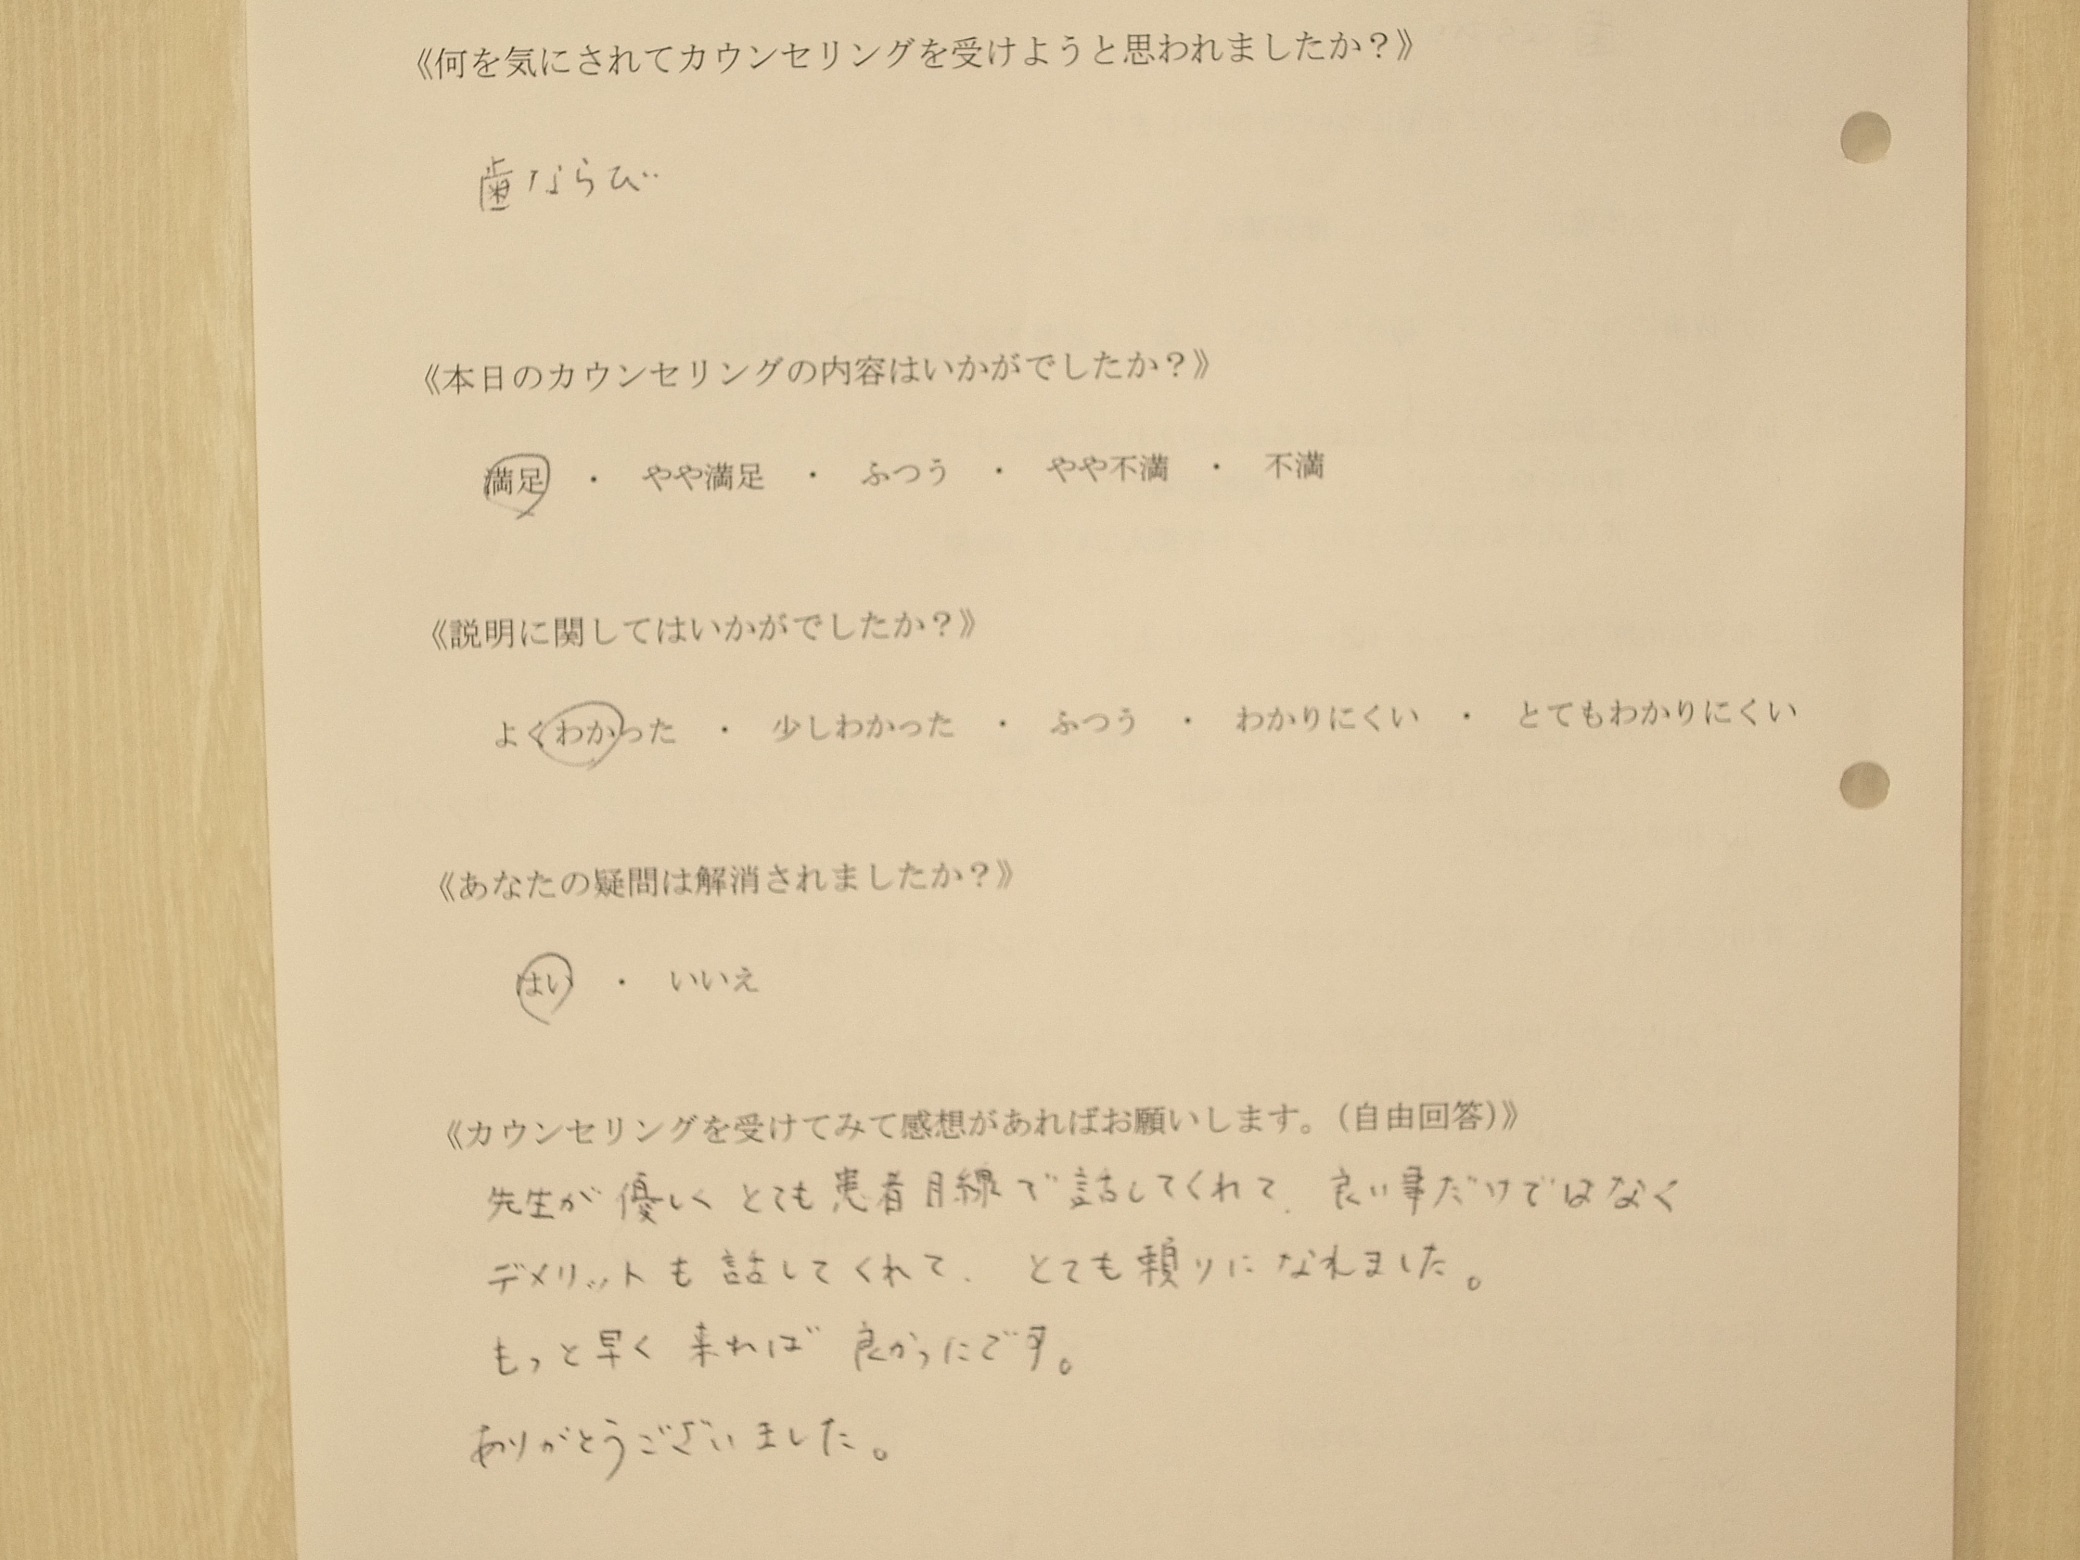 《何を気にされてカウンセリングを受けようと思われましたか？》
歯ならび
《本日のカウンセリングの内容はいかがでしたか？》
満足　・　やや満足　・　ふつう　・　やや不満　・　不満
《説明に関してはいかがでしたか？》
よくわかった　・　少しわかった　・　ふつう　・　わかりにくい　・　とてもわかりにくい
《あなたの疑問は解消されましたか？》
はい　・　いいえ
《カウンセリングを受けてみて感想があればお願いします。（自由回答）》
先生が優しくとても患者目線で話してくれて、良い事だけではなく
デメリットも話してくれて、とても頼りになれました。
もっと早く来れば良かったです。
ありがとうございました。